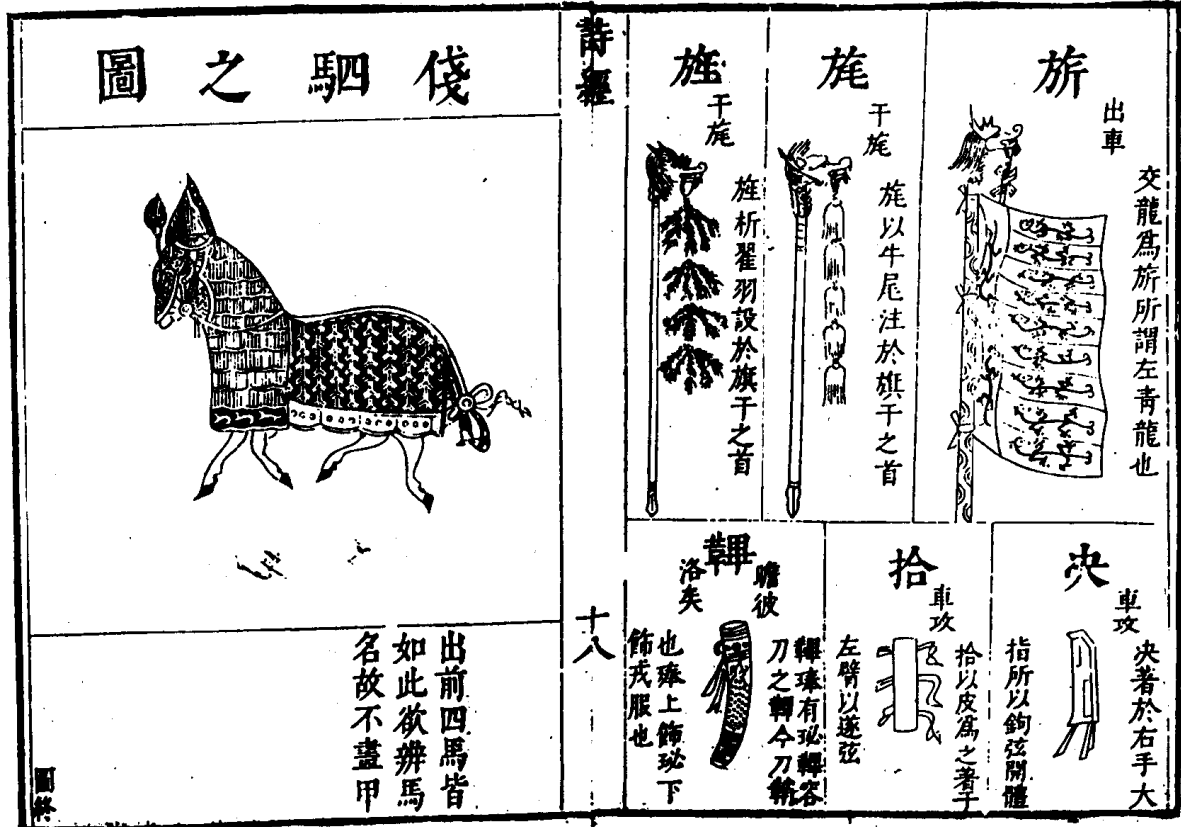 旂
出車
交龍爲旂所謂左青龍也
旄
干旄
旄以牛尾注於旗干之首
旌
干旄
旌析翟羽設於旗干之首
夬
車攻
夬著於右手大
指所以鉤弦開體
拾
車攻
拾以皮爲之著于
左臂以遂弦
鞸
瞻彼
洛矣
鞸琫有珌鞸容
刀之鞸今刀鞘
也琫上飾珌下
飾戎服也
詩經
十八
俴駟之圖
出前四馬皆
如此欲辨馬
名故不盡甲
圖終